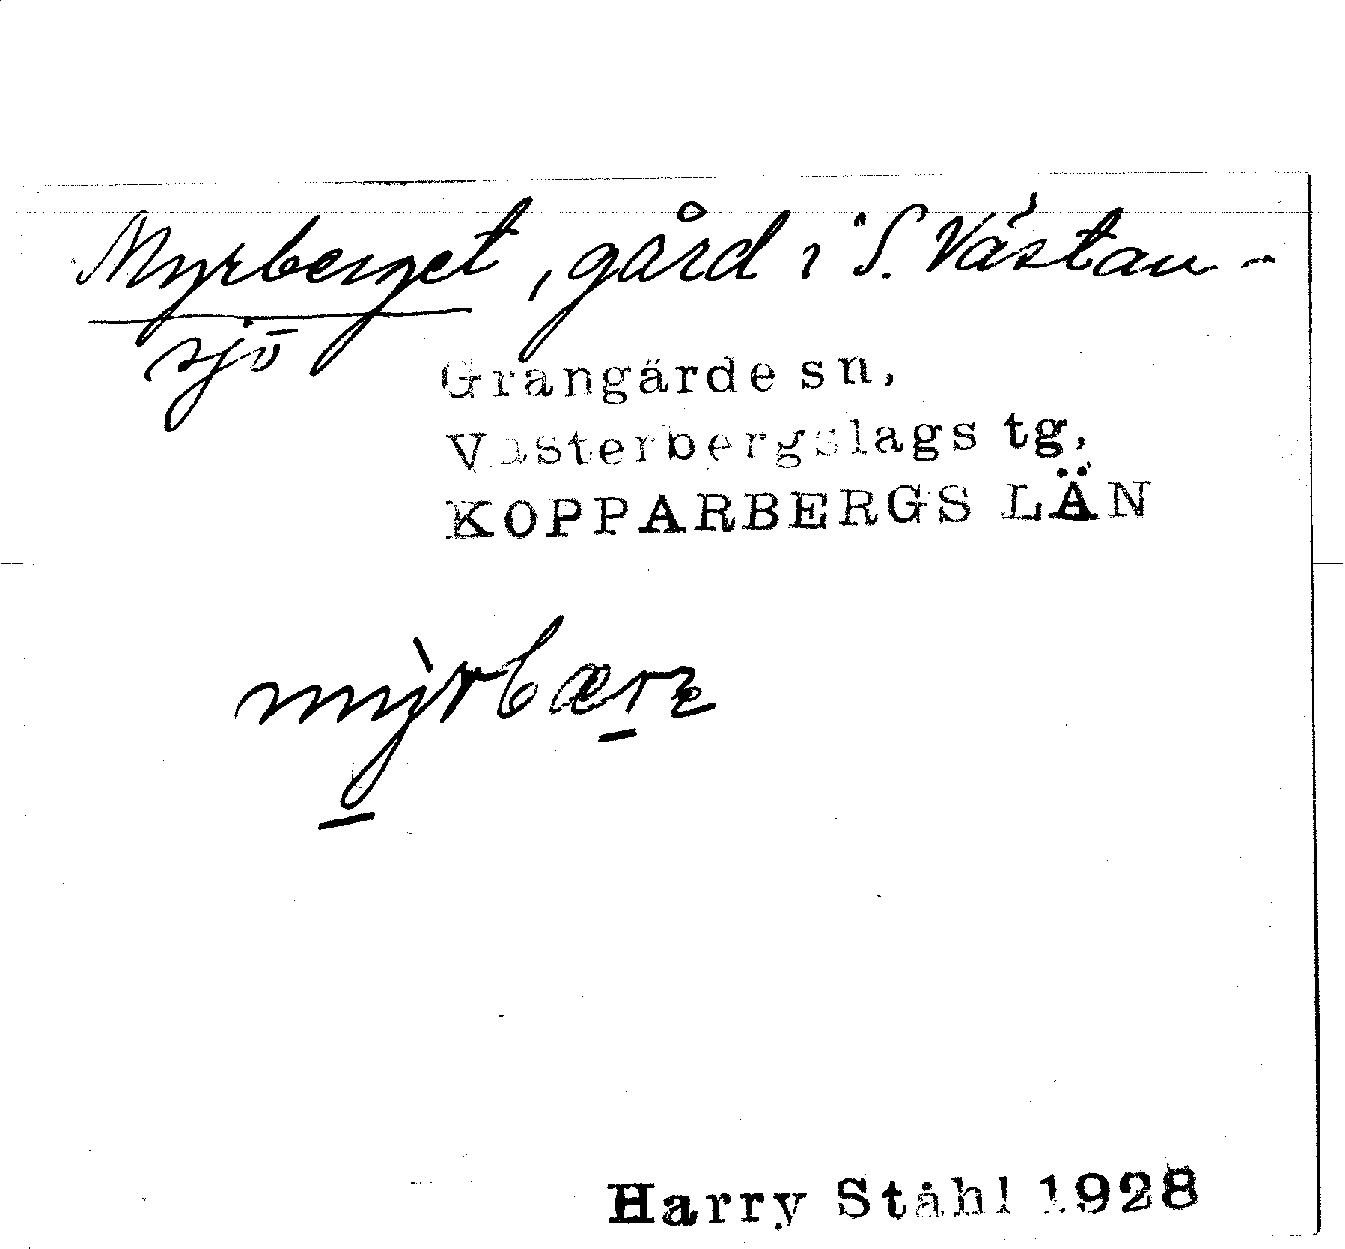 Myrberget, gård i S. Västan-
sjö
Grangärde sn,
Västerbergslags tg,
KOPPARBERGS LÄN
mỳ̠rbær̠ɐ
Harry Ståhl 1928